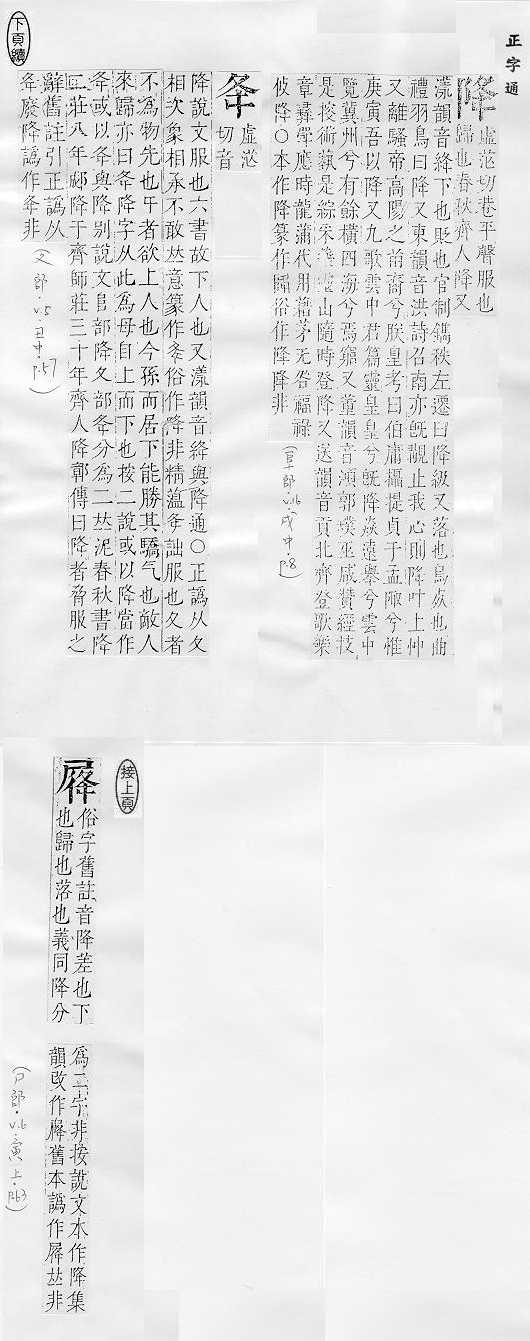 正字通
降
虛茳切巷平聲服也
歸也春秋齊人降又
漾韻音絳下也貶也官制鐫秩左遷曰降級又落也鳥死也曲
禮羽鳥曰降又東韻音洪詩召南亦旣覯止我心則降叶上忡
又離騷帝高陽之苗裔兮朕皇考曰伯庸攝提貞于孟陬兮惟
庚寅吾以降又九歌雲中君篇靈皇皇兮旣降猋遠擧兮雲中
覽冀州兮有餘橫四海兮焉窮又董韻音澒郭璞巫咸贊經技
是搜術蓺是綜采藥靈山隨時登降又送韻音貢北齊登歌樂
章彝斝應時龍蒲代用藉茅无咎福祿
攸降○本作降篆作俗作降降非
(阜部·v.6·戌中·P.8)
夅
虛茳
切音
降說文服也六書故下人也又漾韻音絳與降通○正譌从夂
相次象相承不敢𠀤意篆作夅俗作降非精薀夅詘服也夂者
不爲物先也㐄者欲上人也今孫而居下能勝其驕气也敵人
來歸亦曰夅降字从此爲母自上而下也按二說或以降當作
夅或以夅與降別說文𨸏部降夂部夅分爲二𠀤泥春秋書降
二莊八年郕降于齊師莊三十年齊人降鄣傳曰降者脅服之
辭舊註引正譌从
夅廢降譌作夆非
(夊部·v.5·丑中·P.57)
下頁續
接上頁
屸
俗字舊註音降差也下
也歸也落也義同降分
爲二字非按說文本作降集
韻改作舊本譌作𠀤非
(尸部·v.6·寅上·P.63)